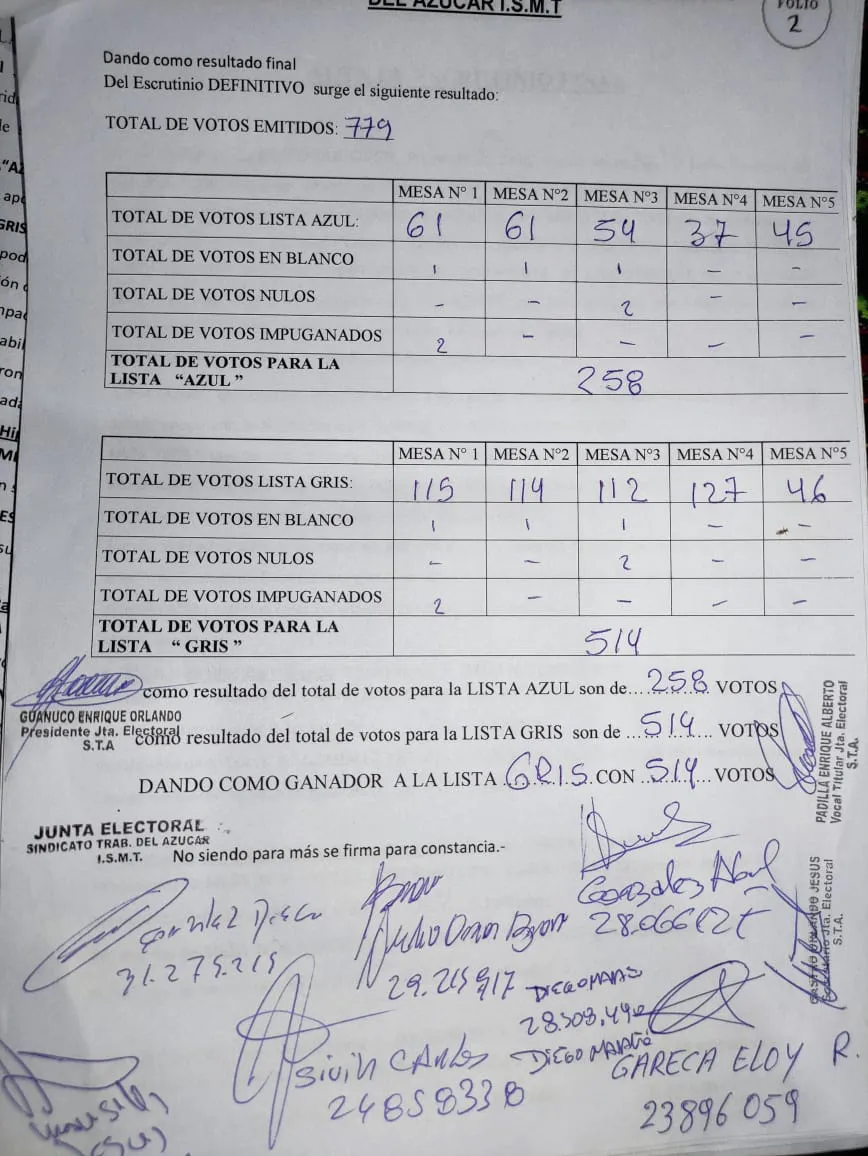 DEL AZUCAR I.S.M.T
FOLIO
2
Dando como resultado final
Del Escrutinio DEFINITIVO surge el siguiente resultado:
TOTAL DE VOTOS EMITIDOS: 779
MESA N° 1 MESA N°2 MESA N°3 MESA N°4 MESA N°5
TOTAL DE VOTOS LISTA AZUL: 61 61 54 37 45
TOTAL DE VOTOS EN BLANCO 1 1 1 - -
TOTAL DE VOTOS NULOS - - 2 - -
TOTAL DE VOTOS IMPUGANADOS 2 - - - -
TOTAL DE VOTOS PARA LA
LISTA "AZUL" 258
MESA N° 1 MESA N°2 MESA N°3 MESA N°4 MESA N°5
TOTAL DE VOTOS LISTA GRIS: 115 114 112 127 46
TOTAL DE VOTOS EN BLANCO 1 1 1 - -
TOTAL DE VOTOS NULOS - - 2 - -
TOTAL DE VOTOS IMPUGANADOS 2 - - - -
TOTAL DE VOTOS PARA LA
LISTA " GRIS " 514
como resultado del total de votos para la LISTA AZUL son de....258. VOTOS
GUANUCO ENRIQUE ORLANDO
Presidente Jta. Electoral
S.T.A
como resultado del total de votos para la LISTA GRIS son de ...514... VOTOS
DANDO COMO GANADOR A LA LISTA GRIS CON 514 VOTOS
PADILLA ENRIQUE ALBERTO
Vocal Titular Jta. Electoral
S.T.A.
JUNTA ELECTORAL
SINDICATO TRAB. DEL AZUCAR
I.S.M.T.
No siendo para más se firma para constancia.-
Jta. Electoral
S.T.A.
Gonzales
31.275.215
29.215.917
DIEGO
DIEGO
GARECA ELOY R.
23896059
Carlos
24858338